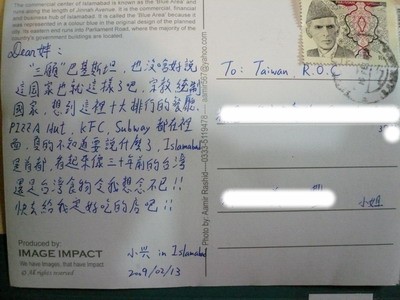 The commercial center of Islamabad is known as the 'Blue Area' and
runs along the length of Jinnah Avenue. It is the commercial, financial
and business hub of Islamabad. It is called the 'Blue Area' because it
was represented in a colour blue in the original design of the planned
city. Its eastern end runs into Parliament Road, where the majority of the
country's government buildings are located.
Dear 婷:
"三顧"巴基斯坦, 也沒啥好說
這國家也就這樣了吧, 宗教控制
國家, 想到這裡十大排行的餐廳
PIZZA Hut, KFC, Subway 都在裡
面, 真的不知道要說什麼了, Islamabad
是首都, 看起來像三十年前的台灣
還是台灣食物令我想念不已!!
快去給我是好吃的店吧!!
小兴 in Islamabad
2009/02/13
Produced by:
IMAGE IMPACT
We have images, that have impact
© All rights reserved
Photo by: Aamir Rashid—0333-5119478—aamir567@yahoo.com
To: Taiwan, R.O.C
小姐